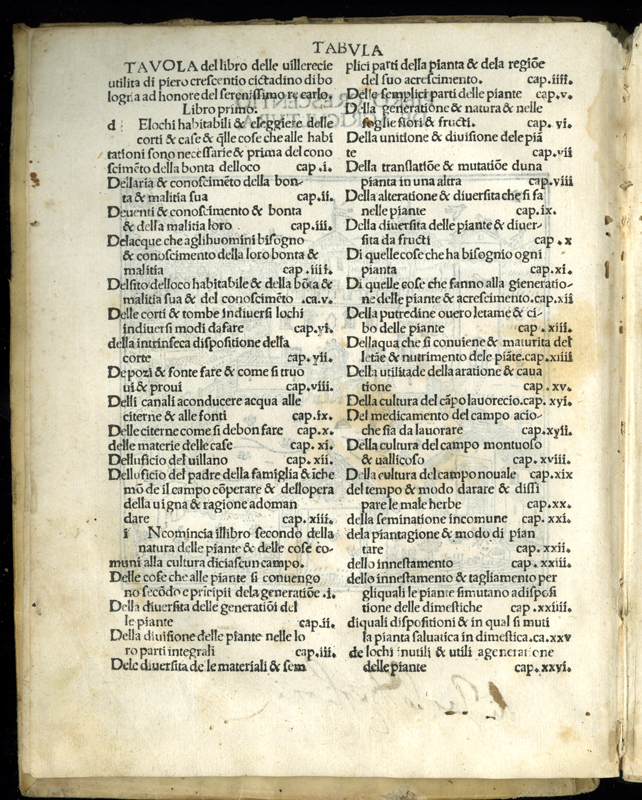 TABVLA
TAVOLA del libro delle uillerecie
utilita di piero crescentio cictadino di bo
logna ad honore del serenissimo re carlo.
Libro primo.
d Elochi habitabili & eleggiere delle
corti & case & q̃lle cose che alle habi
tationi sono necessarie & prima del cono
scimẽto della bonta delloco cap.i.
Dellaria & conoscimẽto della bon-
ta & malitia sua cap.ii.
Deuenti & conoscimento & bonta
& della malitia loro cap.iii.
Delacque che aglihuomini bisogno
& conoscimento della loro bonta &
malitia cap.iiii.
Delsito delloco habitabile & della bõta &
malitia sua & del conoscimẽto .ca.v.
Delle corti & tombe indiuersi lochi
indiuersi modi dafare cap.vi.
della intrinseca dispositione della
corte cap.vii.
De pozi & fonte fare & come si truo
ui & proui cap.viii.
Delli canali aconducere acqua alle
citerne & alle fonti cap.ix.
Delle citerne come si debon fare cap.x.
delle materie delle case cap.xi.
Delluficio del uillano cap.xii.
Delluficio del padre della famiglia & ĩche
mõ de il campo cõperare & dellopera
della uigna & ragione adoman
dare cap.xiii.
i Ncomincia illibro secondo della
natura delle piante & delle cose co-
muni alla cultura diciascun campo.
Delle cose che alle piante si conuengo
no secõdo e pricipii dela generatiõe .i.
Della diuersita delle generatiõi del
le piante cap.ii.
Della diuisione delle piante nelle lo
ro parti integrali cap.iii.
Dele diuersita de le materiali & sem
plici parti della pianta & dela regiõe
del suo acrescimento. cap.iiii.
Delle semplici parti delle piante cap.v.
Della generatiõne & natura & nelle
foglie fiori & fructi. cap.vi.
Della unitione & diuisione dele piã
te cap.vii
Della translatiõe & mutatiõe duna
pianta in una altra cap.viii
Della alteratione & diuersita che si fa
nelle piante cap.ix.
Della diuersita delle piante & diuer-
sita da fructi cap.x
Di quelle cose che ha bisognio ogni
pianta cap.xi.
Di quelle cose che fanno alla gieneratio-
ne delle piante & acrescimento.cap.xii
Della putredine ouero letame & ci-
bo delle piante cap.xiii.
Dellaqua che si conuiene & maturita del
letãe & nutrimento dele piãte.cap.xiiii
Della utilitade della aratione & caua
tione cap.xv.
Della cultura del cãpo lauorecio.cap.xyi.
Del medicamento del campo acio-
che sia da lauorare cap.xyii.
Della cultura del campo montuoso
& uallicoso cap.xviii.
Della cultura del campo nouale cap.xix
del tempo & modo darare & dissi
pare le male herbe cap.xx.
della seminatione incomune cap.xxi.
dela piantagione & modo di pian
tare cap.xxii.
dello innestamento cap.xxiii.
dello innestamento & tagliamento per
gliquali le piante simutano adisposi
tione delle dimestiche cap.xxiiii.
diquali dispositioni & in qual si muti
la pianta saluatica in dimestica.ca.xxv
de lochi inutili & utili ageneratione
delle piante cap.xxyi.